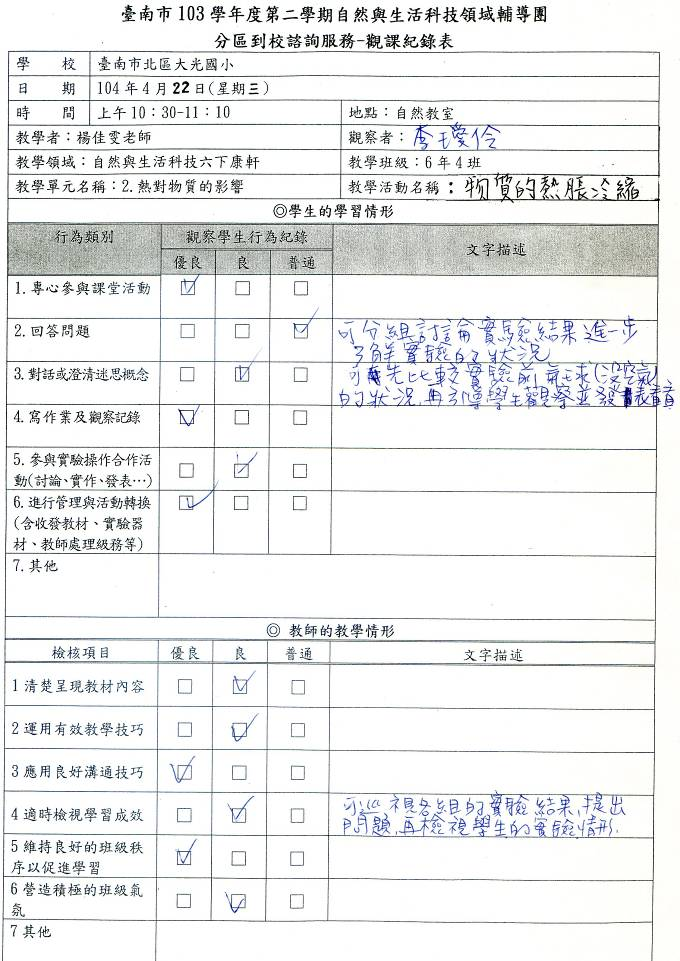 臺南市 103 學年度第二學期自然與生活科技領域輔導團
分區到校諮詢服務-觀課紀錄表
學 校 臺南市北區大光國小
日 期 104 年 4 月 22 日(星期三)
時 間 上午 10：30-11：10 地點：自然教室
教學者：楊佳雯老師 觀察者：李璦伶
教學領域：自然與生活科技六下康軒 教學班級：6 年 4 班
教學單元名稱：2.熱對物質的影響 教學活動名稱：物質的熱脹冷縮
◎學生的學習情形
行為類別 觀察學生行為紀錄 文字描述
優良 良 普通
1.專心參與課堂活動 ☑ □ □
2.回答問題 □ □ ☑ 可分組討論實驗結果進一步
了解實驗的狀況
3.對話或澄清迷思概念 □ ☑ □ 可先比較實驗前氣球(沒空氣)
的狀況,再引導學生觀察並發表
4.寫作業及觀察記錄 ☑ □ □
5.參與實驗操作合作活
動(討論、實作、發表…) □ ☑ □
6.進行管理與活動轉換 ☑ □ □
(含收發教材、實驗器
材、教師處理級務等)
7.其他
◎ 教師的教學情形
檢核項目 優良 良 普通 文字描述
1 清楚呈現教材內容 □ ☑ □
2 運用有效教學技巧 □ ☑ □
3 應用良好溝通技巧 ☑ □ □
4 適時檢視學習成效 □ ☑ □ 可巡視各組的實驗結果,提出
問題,再檢視學生的實驗情形.
5 維持良好的班級秩
序以促進學習 ☑ □ □
6 營造積極的班級氣
氛 □ ☑ □
7 其他